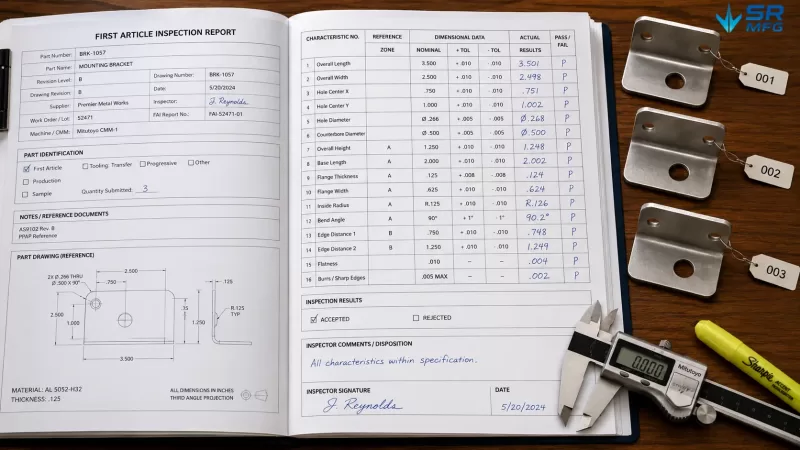 FIRST ARTICLE INSPECTION REPORT
Part Number: BRK-1057
Part Name: MOUNTING BRACKET
Revision Level: B Drawing Number: BRK-1057
Drawing Revision: B Date: 5/20/2024
Supplier: Premier Metal Works Inspector: J. Reynolds
Work Order / Lot: 52471 FAI Report No.: FAI-52471-01
Machine / CMM: Mitutoyo CMM-1
PART IDENTIFICATION
First Article Tooling: Transfer Progressive Other
Production
Sample Quantity Submitted: 3
NOTES / REFERENCE DOCUMENTS
AS9102 Rev. B
PPAP Reference
PART DRAWING (REFERENCE)
2X Ø.266 THRU
Ø.500 X 90°
2.500
.750
.125
2.500
1.000
.75
1.250
R.125
TYP
3.500
MATERIAL: AL 5052-H32
THICKNESS: .125
ALL DIMENSIONS IN INCHES
THIRD ANGLE PROJECTION
CHARACTERISTIC NO. REFERENCE DIMENSIONAL DATA ACTUAL PASS /
ZONE NOMINAL + TOL - TOL RESULTS FAIL
1 Overall Length 3.500 +.010 -.010 3.501 P
2 Overall Width 2.500 +.010 -.010 2.498 P
3 Hole Center X .750 +.010 -.010 .751 P
4 Hole Center Y 1.000 +.010 -.010 1.002 P
5 Hole Diameter Ø.266 +.005 -.005 Ø.268 P
6 Counterbore Diameter Ø.500 +.005 -.005 Ø.500 P
7 Overall Height A 1.250 +.010 -.010 1.248 P
8 Base Length A 2.000 +.010 -.010 2.002 P
9 Flange Thickness A .125 +.008 -.008 .124 P
10 Flange Width A .625 +.010 -.010 .624 P
11 Inside Radius A R.125 +.010 -.010 R.126 P
12 Bend Angle A 90° +1° -1° 90.2° P
13 Edge Distance 1 B .750 +.010 -.010 .748 P
14 Edge Distance 2 B 1.250 +.010 -.010 1.249 P
15 Flatness .010 – – .004 P
16 Burrs / Sharp Edges .005 MAX – – .002 P
INSPECTION RESULTS
ACCEPTED REJECTED
INSPECTOR COMMENTS / DISPOSITION
All characteristics within specification.
INSPECTOR SIGNATURE DATE
J. Reynolds 5/20/2024
SR
MFG
001
002
003
0.000
Mitutoyo
Sharpie